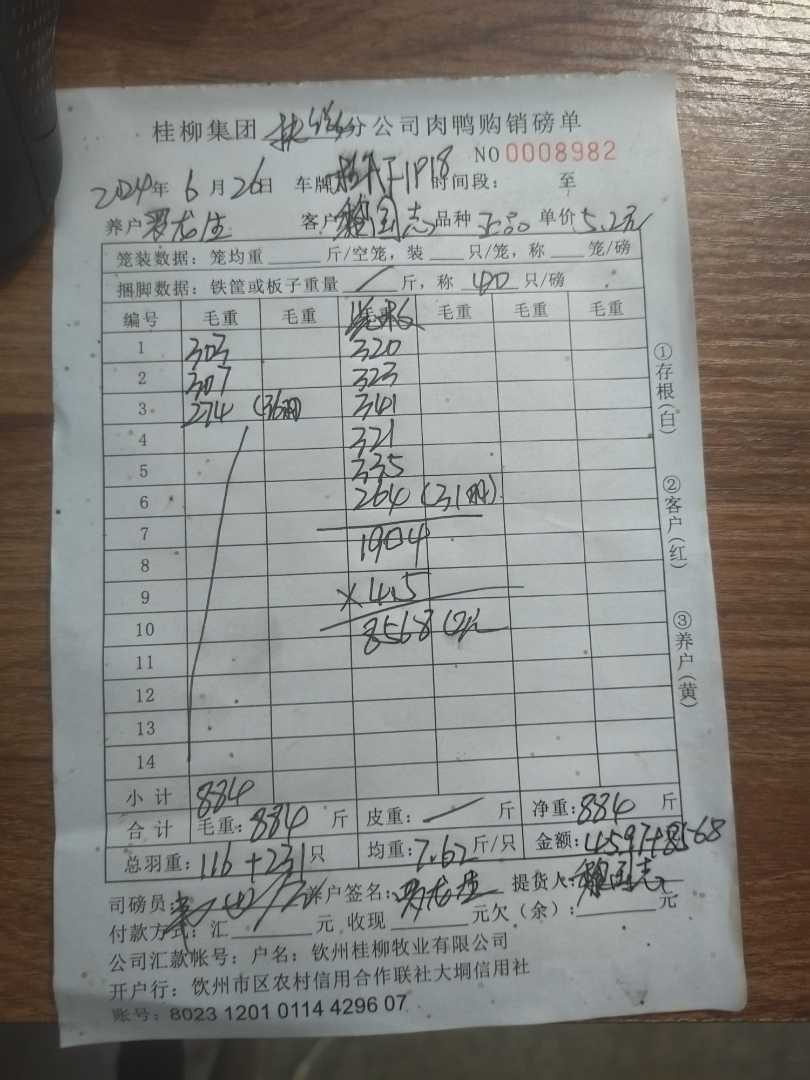 桂柳集团 分公司肉鸭购销磅单
NO 0008982
2024年 6月26日 车牌 F1P18 时间段: 至
养户 罗龙生 客户 国志 品种 正品 单价 5.2元
笼装数据:笼均重 斤/空笼,装 只/笼,称 笼/磅
捆脚数据:铁筐或板子重量 / 斤,称 40 只/磅
编号 毛重 毛重 毛重 毛重 毛重
1 303 320
2 307 323
3 274 (36只) 341
4 321
5 335
6 264 (31只)
7 1904
8
9 ×4.5
10 8568元
11
12
13
14
小计 884
合计 毛重:884 斤 皮重:/ 斤 净重:884 斤
总羽重:116+231只 均重:7.62斤/只 金额:4597+8568
司磅员: 养户签名:罗龙生 提货人: 国志
付款方式:汇 元 收现 元欠(余): 元
公司汇款帐号:户名:钦州桂柳牧业有限公司
开户行:钦州市区农村信用合作联社大垌信用社
账号:8023 1201 0114 4296 07
①存根(白)
②客户(红)
③养户(黄)